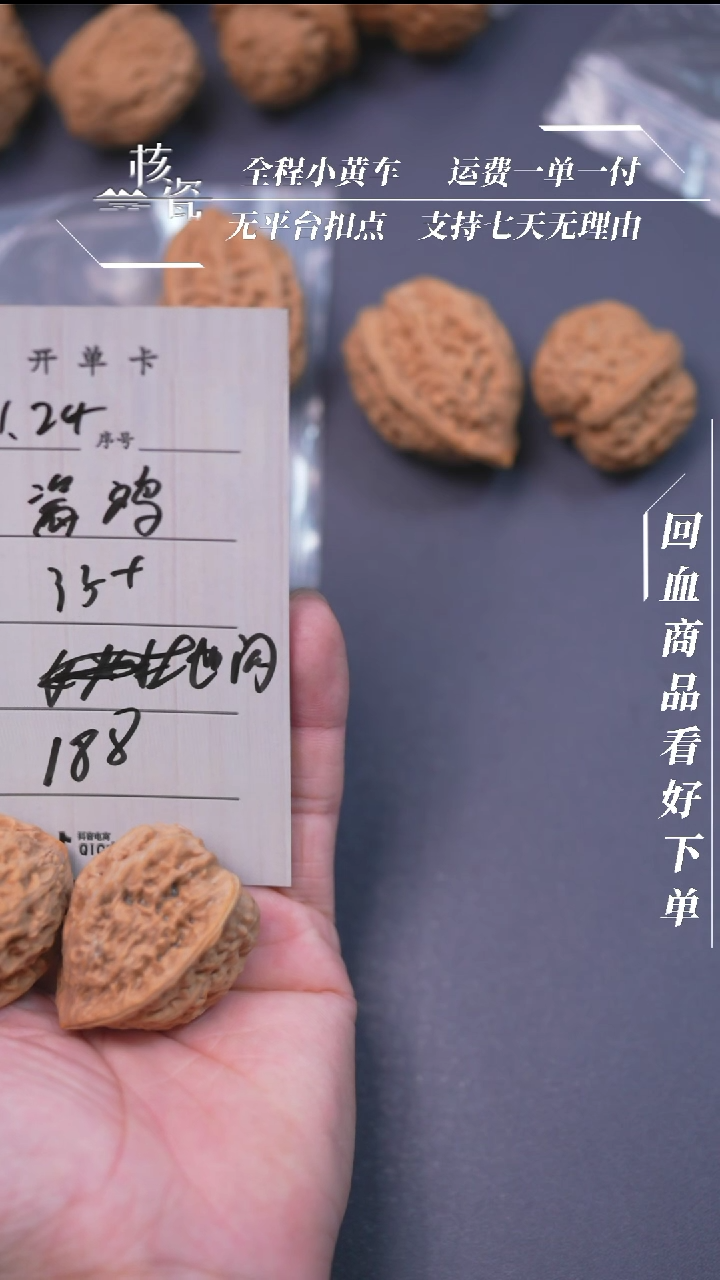 核瓷
全程小黄车 运费一单一付
无平台扣点 支持七天无理由
开单卡
1.24
序号
鸡
35+
闷
188
抖音电商
回血商品看好下单